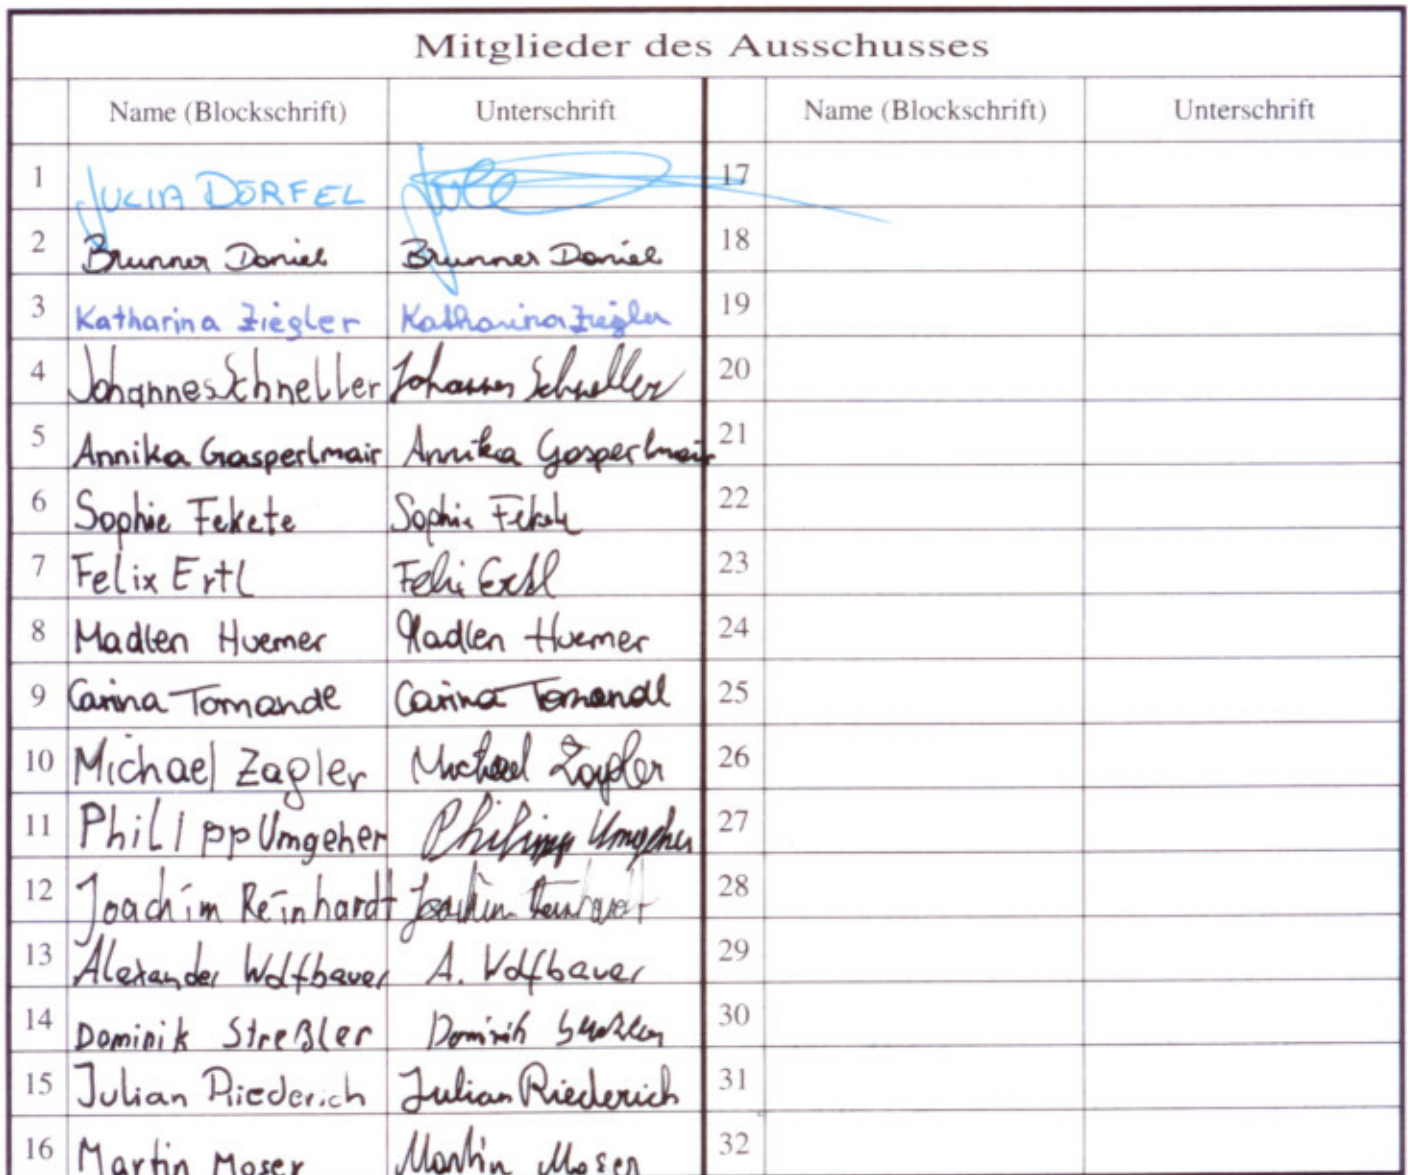 Mitglieder des Ausschusses
Name (Blockschrift) Unterschrift Name (Blockschrift) Unterschrift
1 JULIA DÖRFEL 17
2 Brunner Daniel Brunner Daniel 18
3 Katharina Ziegler Katharina Ziegler 19
4 Johannes Schneller Johannes Schneller 20
5 Annika Gasperlmair Annika Gasperlmair 21
6 Sophie Fekete Sophie Fekete 22
7 Felix Ertl Felix Ertl 23
8 Madlen Huemer Madlen Huemer 24
9 Carina Tomandl Carina Tomandl 25
10 Michael Zagler Michael Zagler 26
11 Philipp Umgeher Philipp Umgeher 27
12 Joachim Reinhardt Joachim Reinhardt 28
13 Alexander Wolfbauer A. Wolfbauer 29
14 Dominik Streßler Dominik Streßler 30
15 Julian Riederich Julian Riederich 31
16 Martin Moser Martin Moser 32